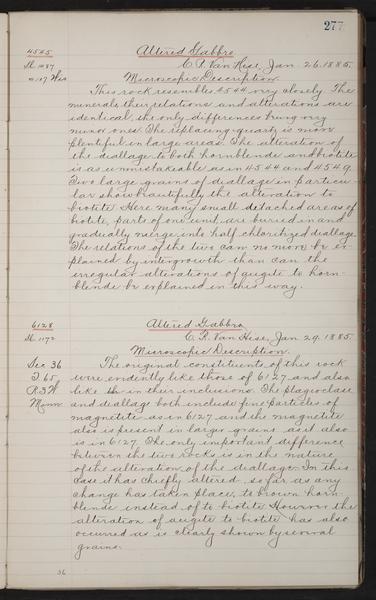 277
4545 Altered Gabbro
C. R. Van Hise, Jan. 26. 1885.
Microscopic Description.
This rock resembles 4544 very closely. The
minerals their relations and alterations are
identical, the only differences being very
minor ones. The replacing quartz is more
plentiful in large areas. The alteration of
the diallage to both hornblende and biotite
is as unmistakeable as in 4544 and 4549.
Two large grains of diallage in particu-
lar show beautifully the alteration to
biotite. Here many small detached areas of
biotite, parts of one unit, are buried in and
gradually merge into half chloritized diallage
The relations of the two can no more be ex-
plained by intergrowth than can the
irregular alterations of augite to horn-
blende be explained in this way.
6128 Altered Gabbro
Sl. 1172 C. R. Van Hise, Jan. 29. 1885.
Microscopic Description.
Sec 36 The original constituents of this rock
T. 65 were evidently like those of 6127 and also
R. 3 W like in their inclusions. The plagioclase
Minn and diallage both include fine particles of
magnetite as in 6127 and the magnetite
also is present in larger grains as it also
is in 6127. The only important difference
between the two rocks is in the nature
of the alteration of the diallage. In this
case it has chiefly altered, so far as any
change has taken place, to brown horn-
blende instead of to biotite However the
alteration of augite to biotite has also
occurred as is clearly shown by several
grains.
36